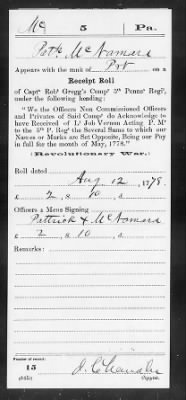 Mc 5 Pa.
Patk McNamara
Appears with the rank of Pvt on a
Receipt Roll
of Capt Robt Gregg's Comp' 5th Penns' Reg',
under the following heading:
"We the Officers Non Commissioned Officers
and Privates of Said Comp' do Acknowledge to
have Received of Lt Job Vernon Acting P. M'
to the 5th P. Reg' the Several Sums to which our
Names or Marks are Set Opposite, Being our Pay
in full for the month of May, 1778."
(Revolutionary War.)
Roll dated
Aug 12, 1778.
£ 2, s. 10, d.
Officers & Mens Signing
Pattrick + McNamara
£ 2, s. 10, d.
Remarks:
Number of record:
15
Copyist.